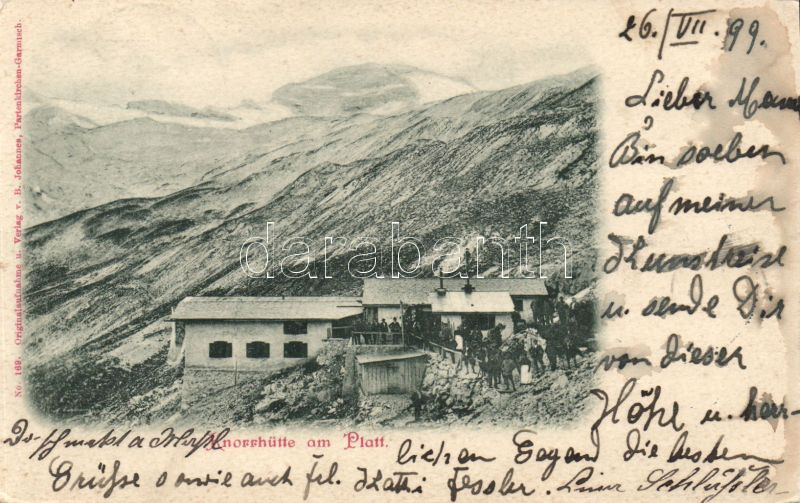 No. 169. Originalaufnahme u. Verlag v. B. Johannes, Partenkirchen-Garmisch.
26/VII. 99.
Lieber
Bin soeben
auf meiner
Kunstreise
u. sende Dir
von dieser
Höhe u. herr-
lichen Gegend die besten
Grüsse sowie auch frl. Kathi Fessler.
Knorrhütte am Platt.
darabanth